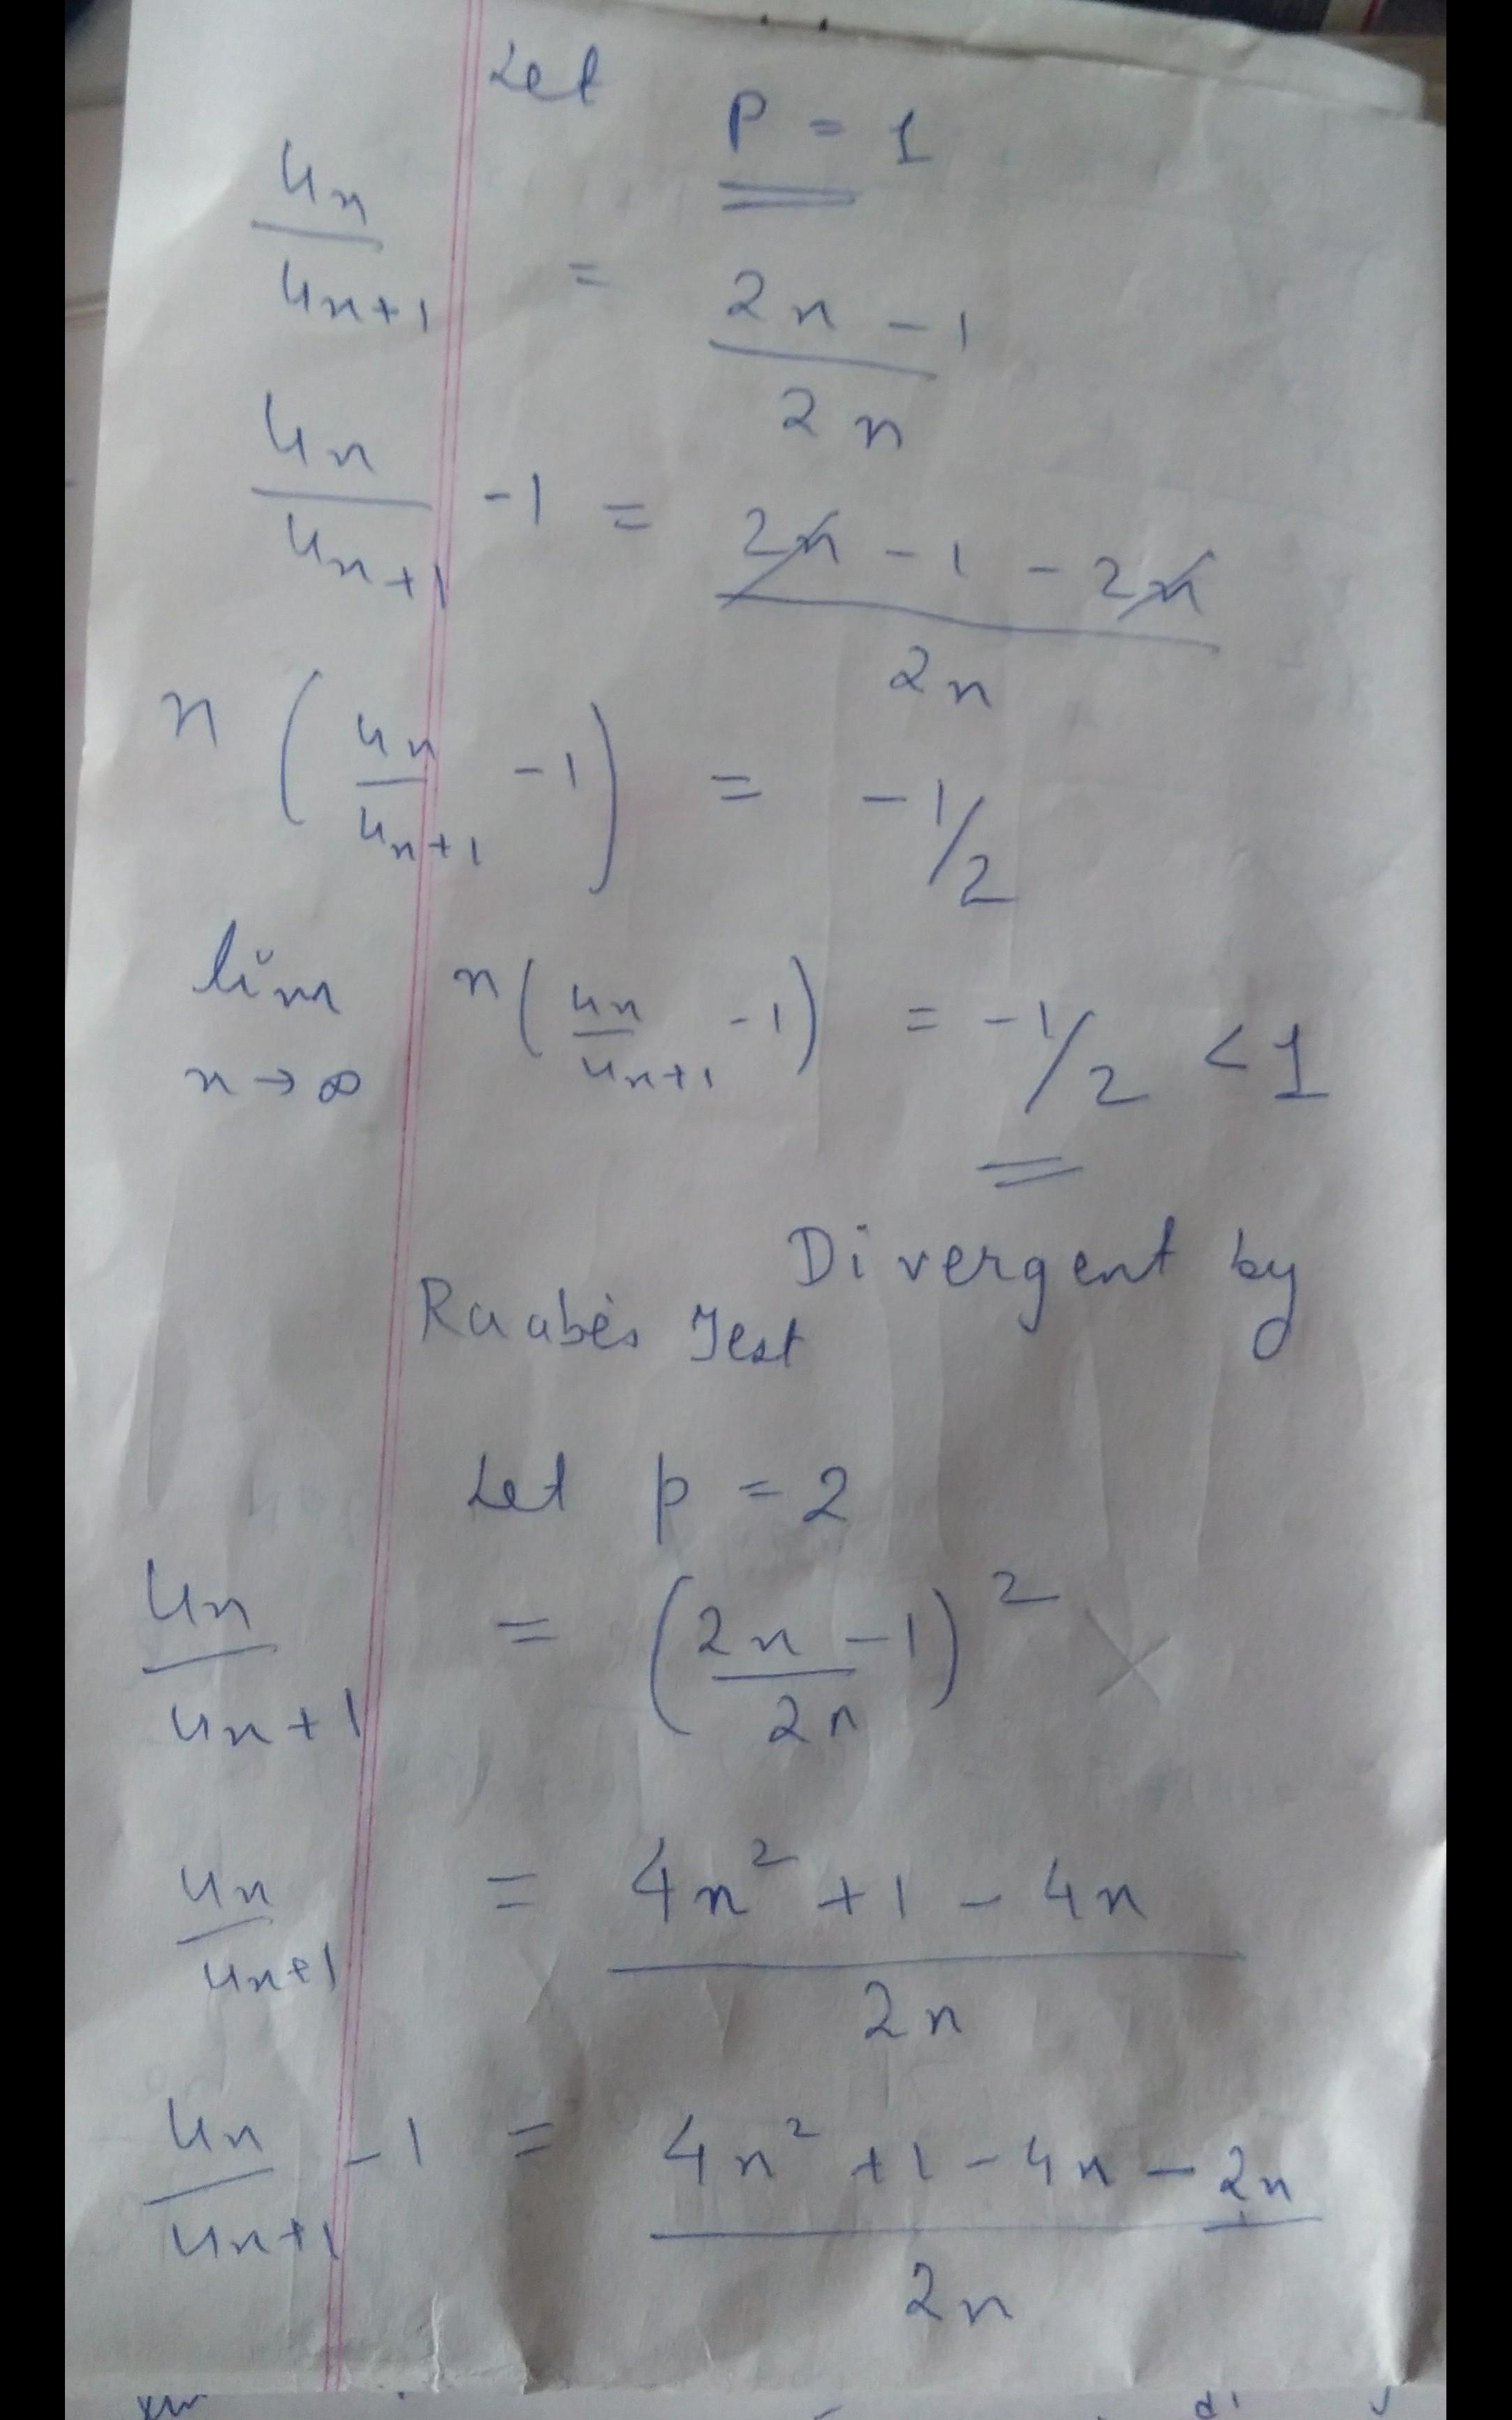 Let P = 1
un/un+1 = (2n - 1)/2n
un/un+1 - 1 = (2n - 1 - 2n)/2n
n(un/un+1 - 1) = -1/2
lim n→∞ n(un/un+1 - 1) = -1/2 < 1
Divergent by
Raabe's Test
Let p = 2
un/un+1 = ((2n - 1)/2n)²
un/un+1 = (4n² + 1 - 4n)/2n
un/un+1 - 1 = (4n² + 1 - 4n - 2n)/2n